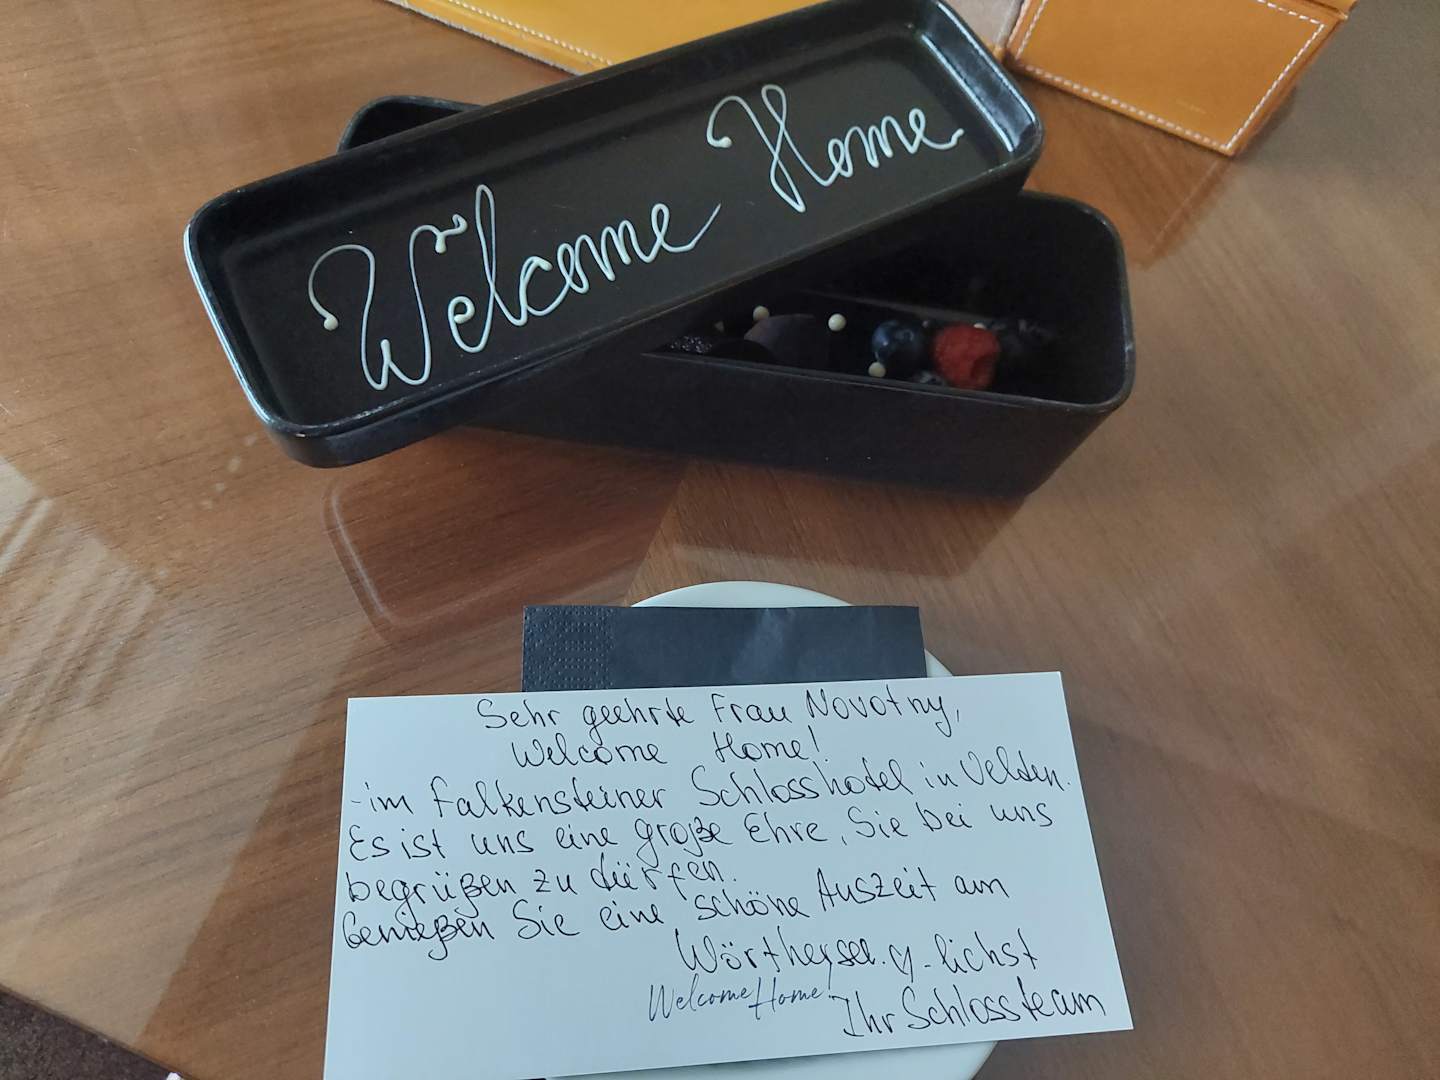 Welcome Home
Sehr geehrte Frau Novotny,
Welcome Home!
-im Falkensteiner Schlosshotel in Velden.
Es ist uns eine große Ehre, Sie bei uns
begrüßen zu dürfen.
Genießen Sie eine schöne Auszeit am
Wörthersee. ♡-lichst
Welcome Home!
Ihr Schlossteam